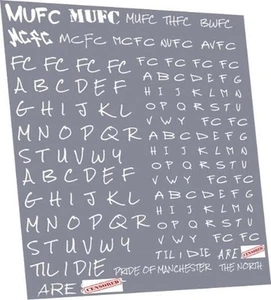 MUFC MUFC MUFC THFC BWFC
MCFC MCFC MCFC NUFC AVFC
FC FC FC FC
A B C D E F
G H I J K L
M N O P Q R
S T U V W Y
A B C D E F
G H I J K L
M N O P Q R
S T U V W Y
TIL I DIE
ARE CENSORED
FC FC FC FC FC
A B C D E F G
H I J K L M N
O P Q R S T U
V W Y FC FC
A B C D E F G
H I J K L M N
O P Q R S T U
V W Y FC FC
TIL I DIE ARE CENSORED
PRIDE OF MANCHESTER THE NORTH